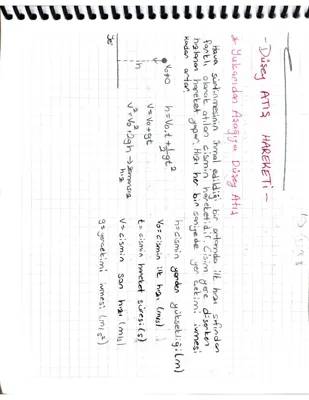 - DÜŞEY ATIŞ HAREKETİ -
* Yukarıdan Aşağıya Düşey Atış
Hava sürtünmesinin ihmal edildiği bir ortamda ilk hızı sıfırdan
farklı olarak atılan cismin hareketidir. Cisim yere düşerken
hızlanan hareket yapar. Hızı her bir saniyede yer çekimi ivmesi
kadar artar.
V₀≠0
h
Yer
h=V₀.t+½gt²
V=V₀+gt
V²=V₀²+2gh → zamansız
hız
h=cismin yerden yüksekliği (m)
V₀=cismin ilk hızı (m/s)
t=cismin hareket süresi (s)
V=cismin son hızı (m/s)
g=yerçekimi ivmesi (m/s²)